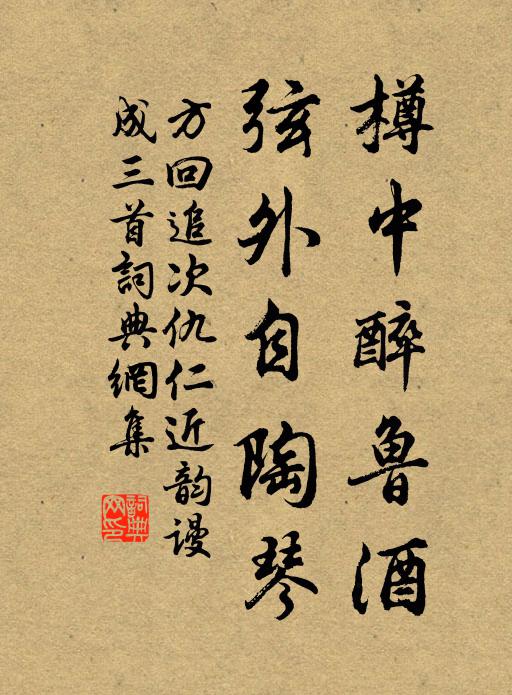 樽中醉魯酒
弦外自陶琴
方回追次仇仁近韵謾
成三首詞典網集
詞典
网印